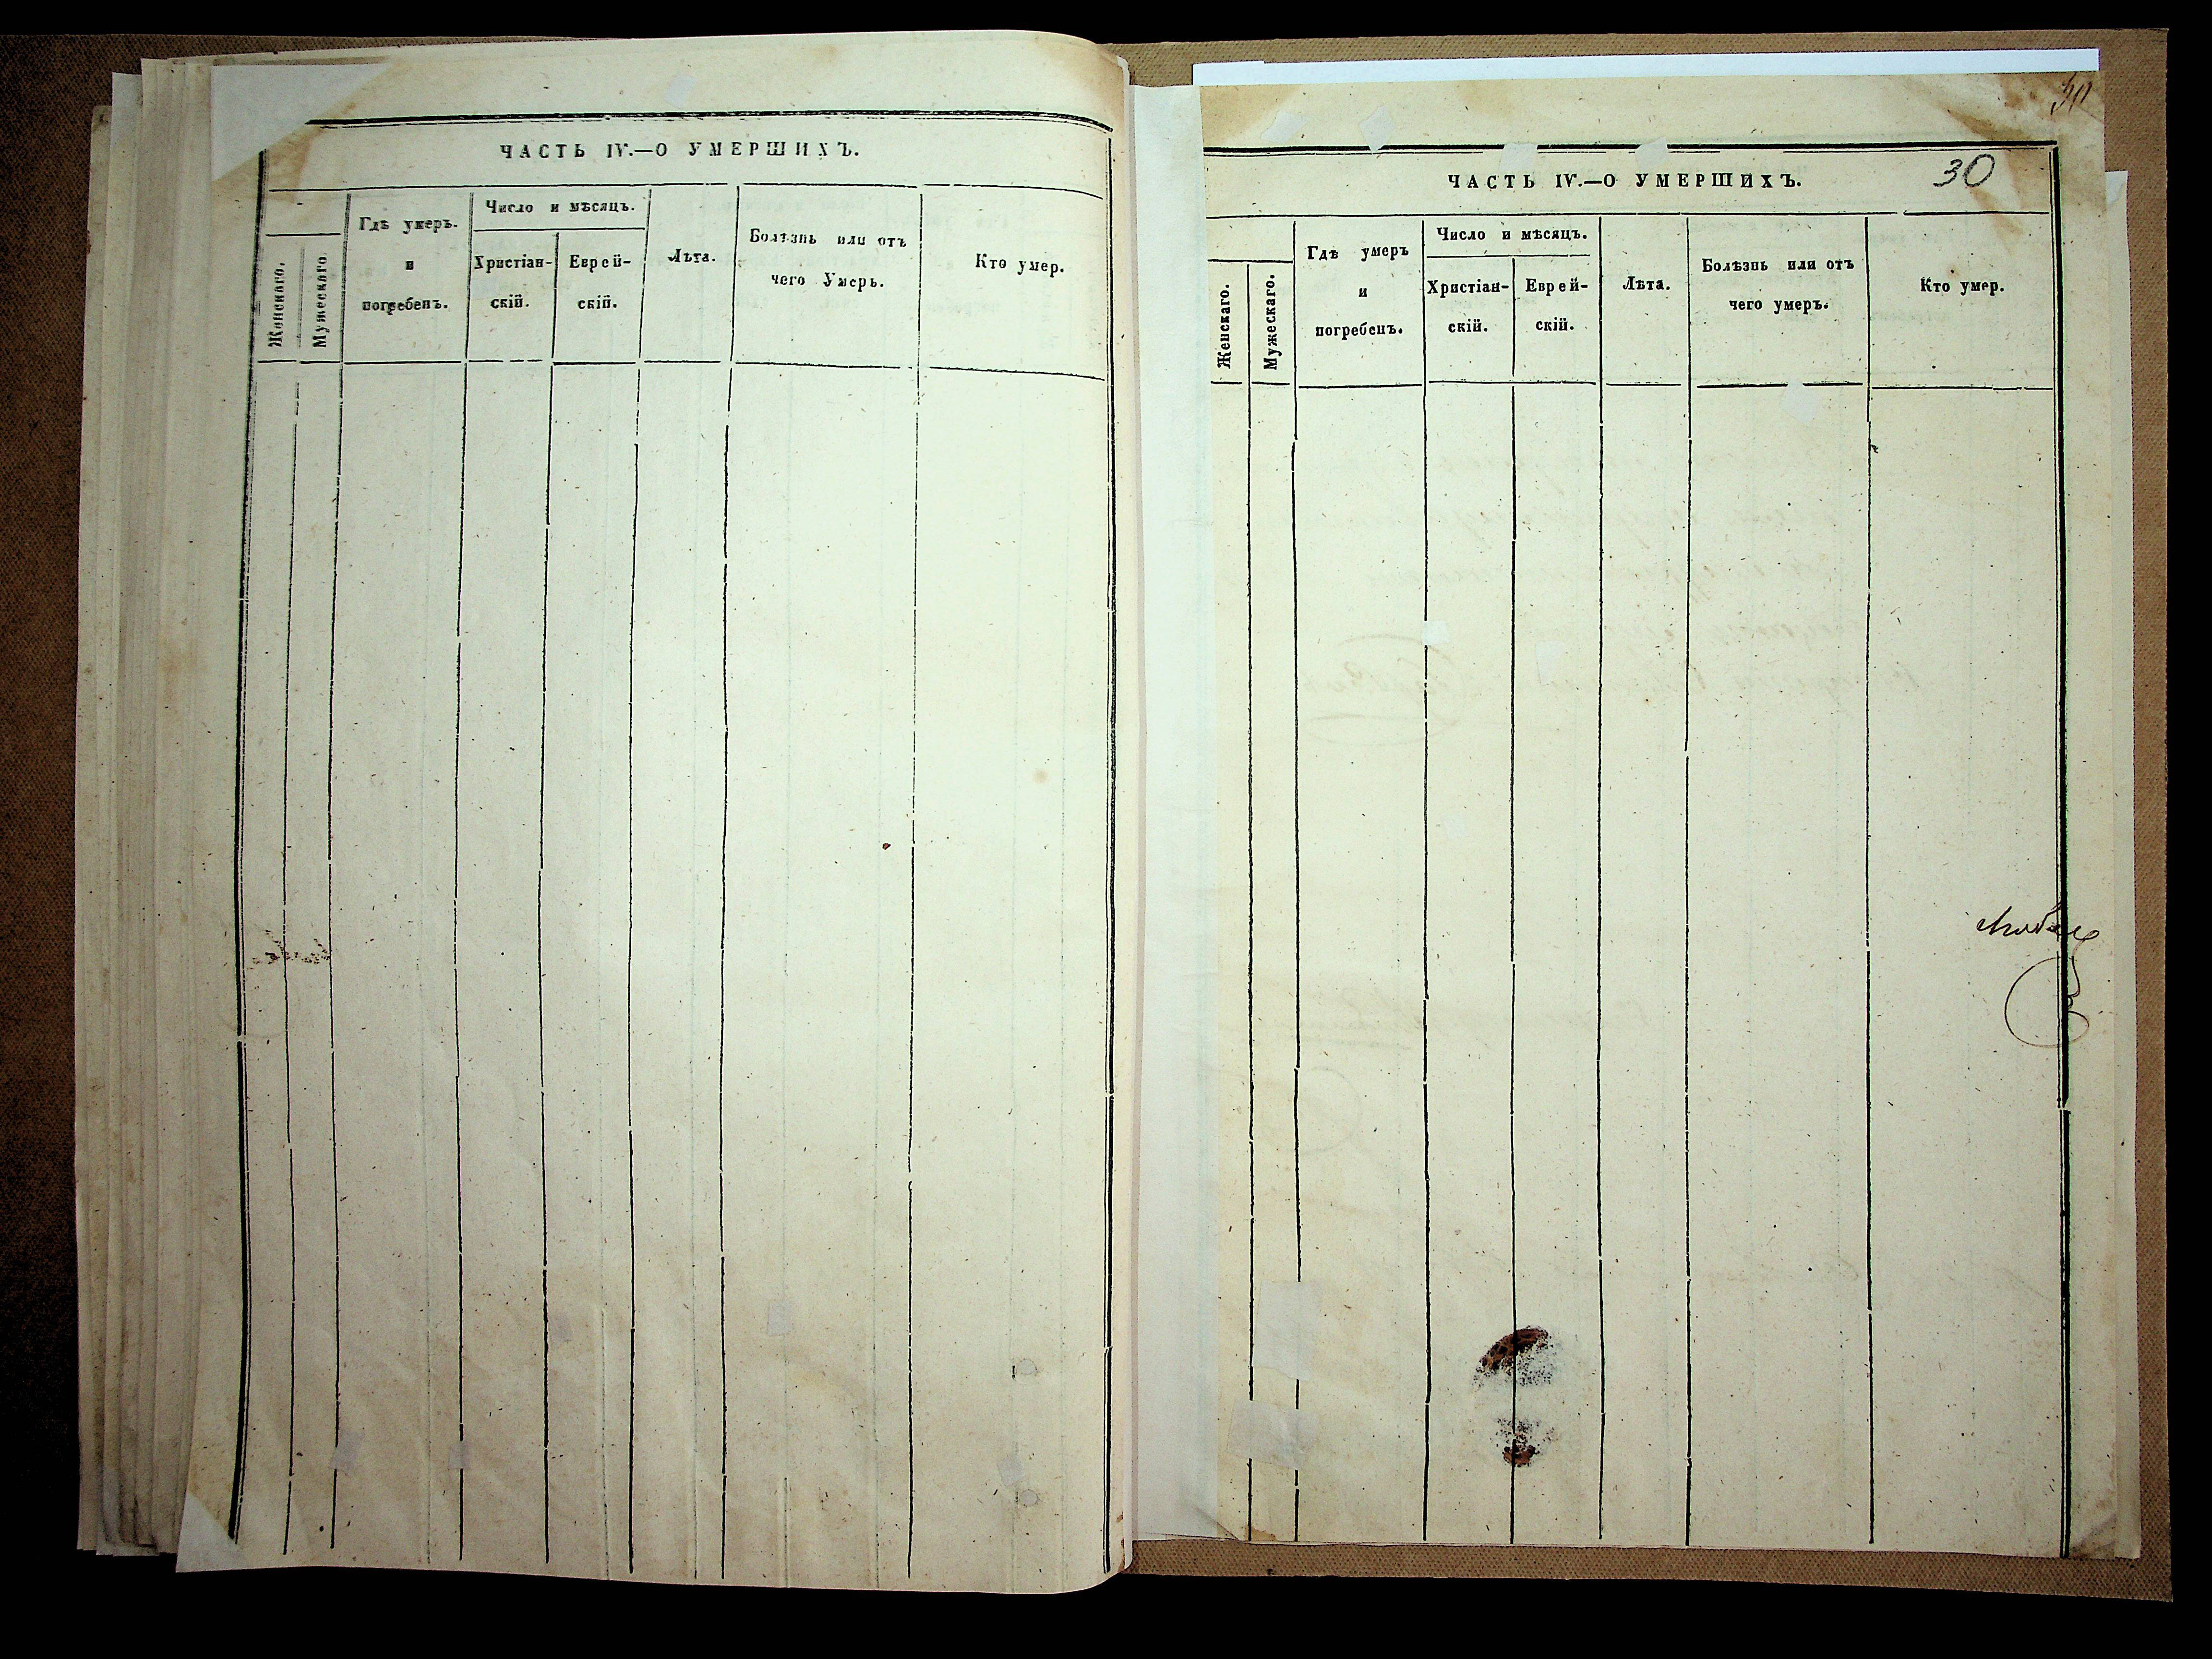 ЧАСТЬ IV.—О УМЕРШИХЪ.
Женскаго.
Мужескаго.
Гдѣ умеръ.
и
погребенъ.
Число и мѣсяцъ.
Христіан-
скій.
Еврей-
скій.
Лѣта.
Болѣзнь или отъ
чего Умеръ.
Кто умер.
30
ЧАСТЬ IV.—О УМЕРШИХЪ.
30
Женскаго.
Мужескаго.
Гдѣ умеръ
и
погребенъ.
Число и мѣсяцъ.
Христіан-
скій.
Еврей-
скій.
Лѣта.
Болѣзнь или отъ
чего умеръ.
Кто умер.